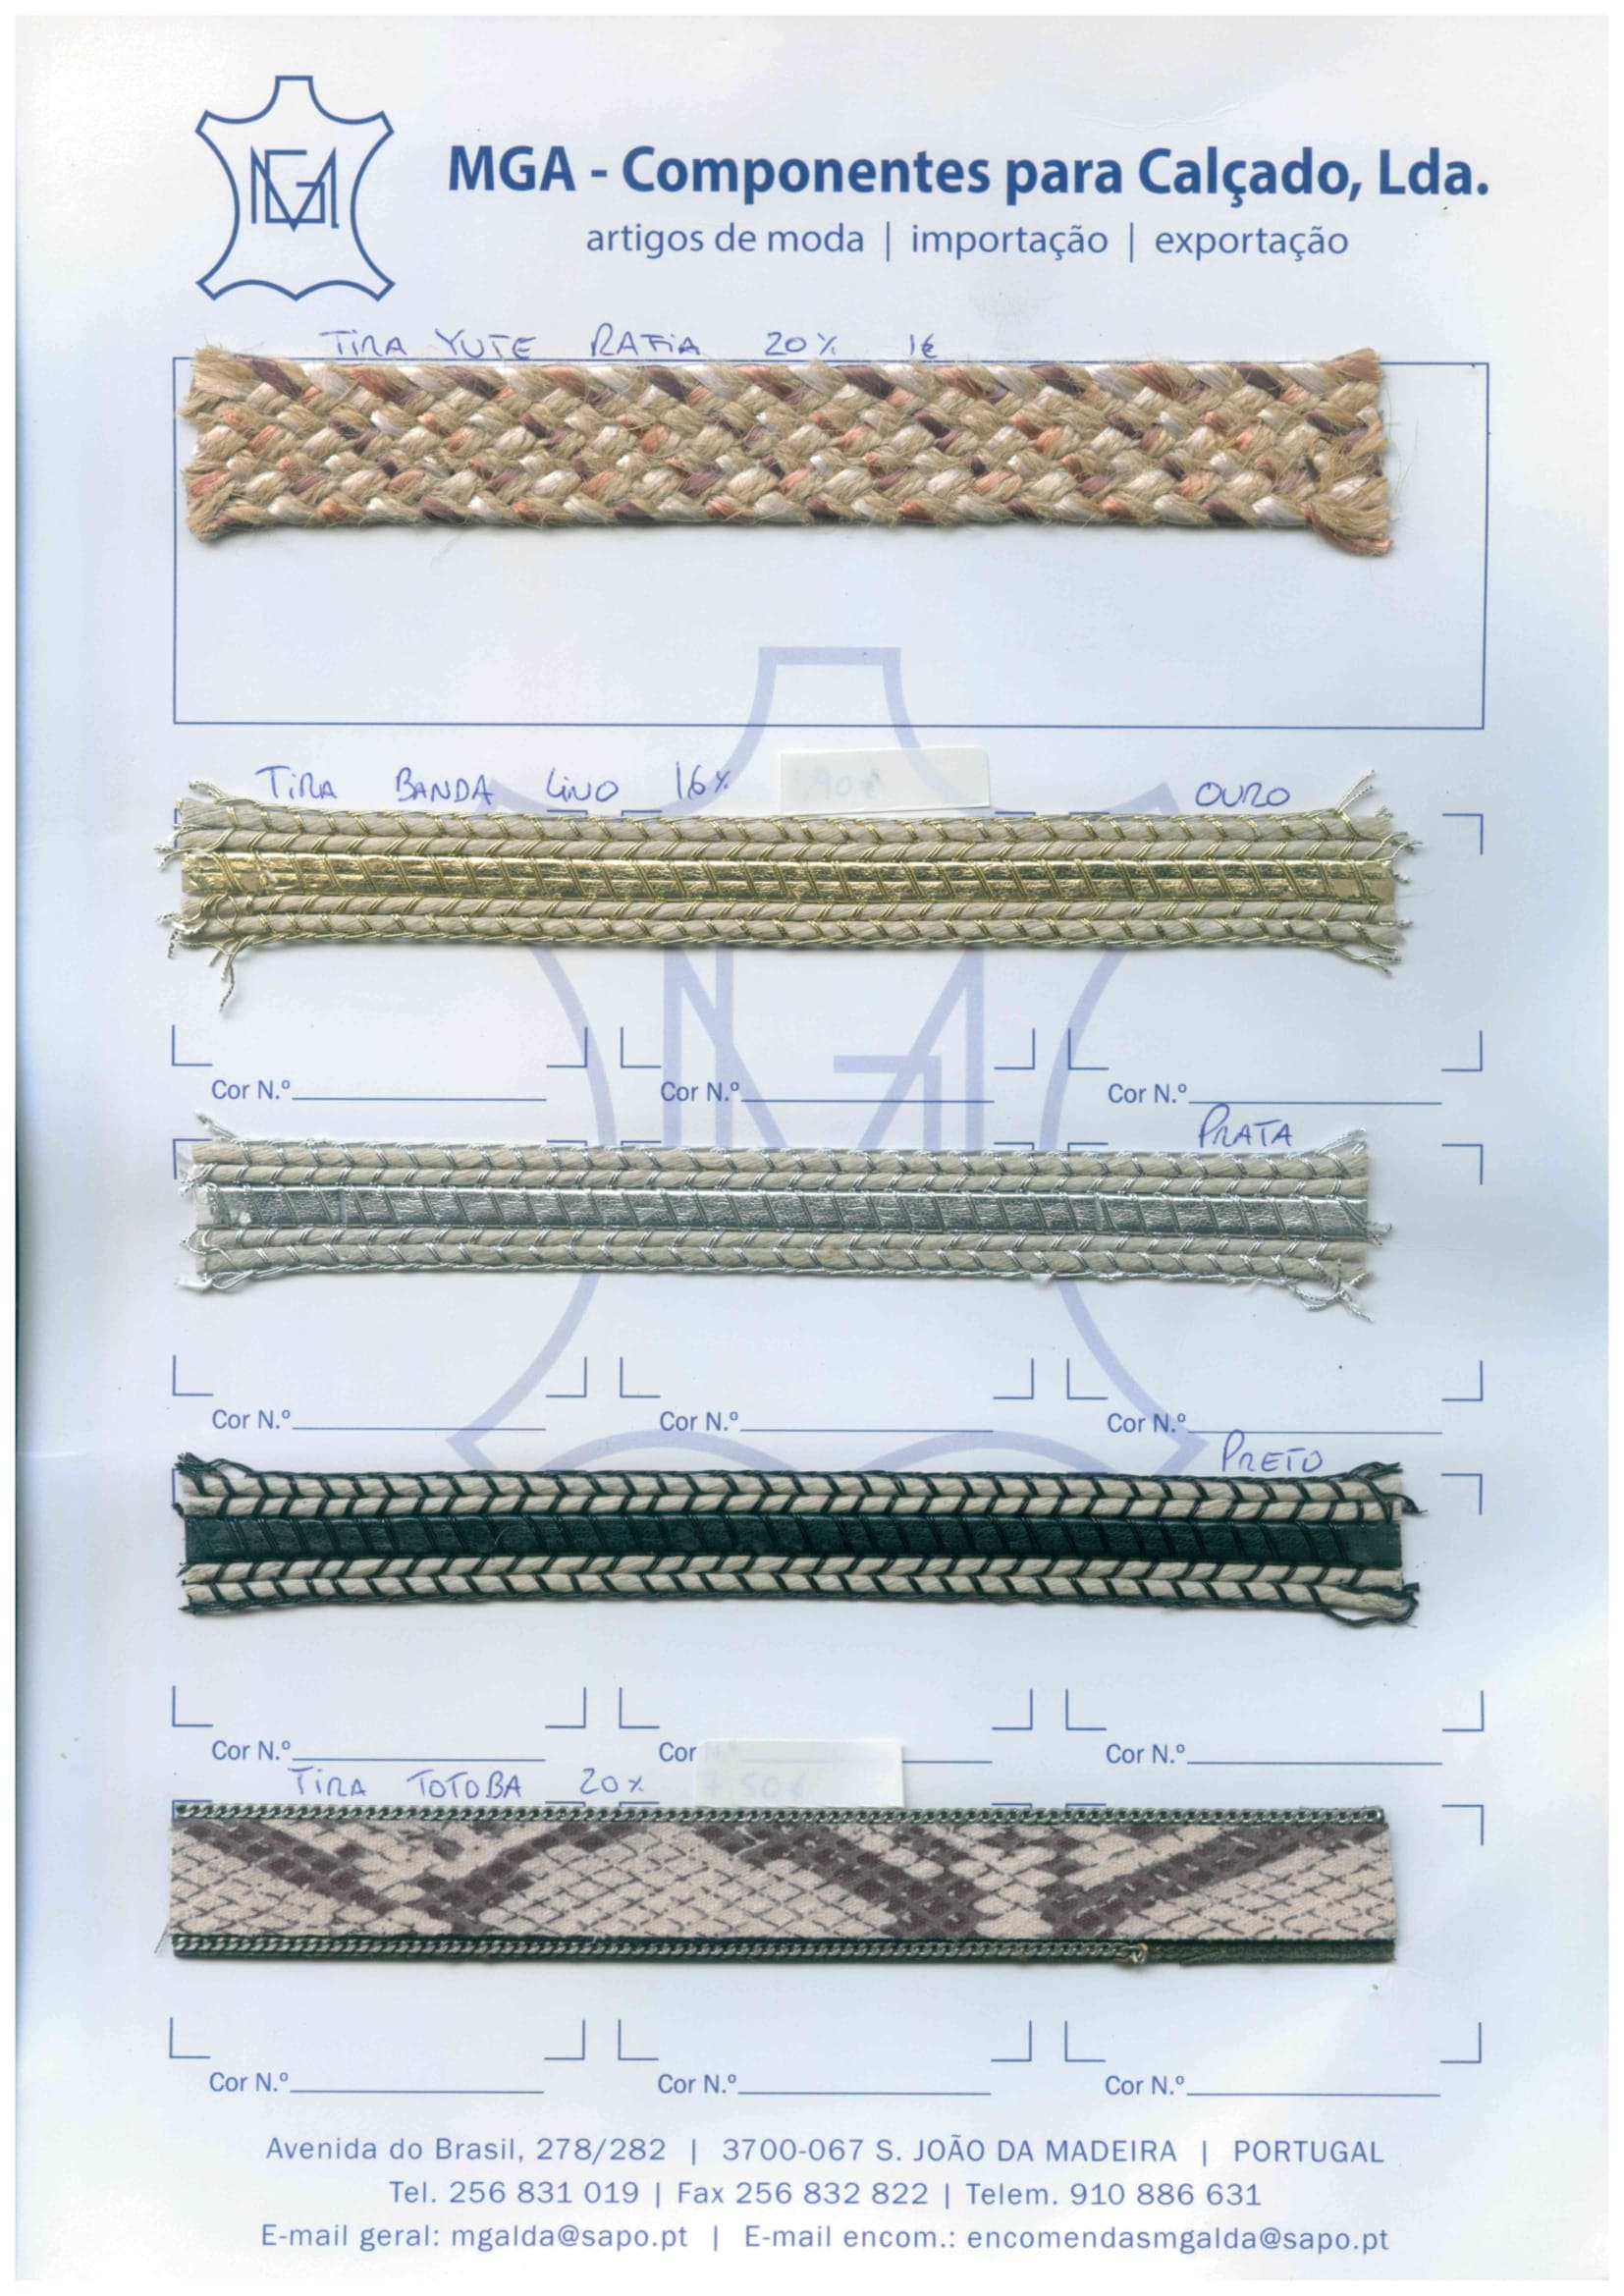 MGA - Componentes para Calçado, Lda.
artigos de moda | importação | exportação
TIRA YUTE RAFIA 20% 1€
TIRA BANDA LINO 16%
OURO
Cor N.º Cor N.º Cor N.º
PRATA
Cor N.º Cor N.º Cor N.º
PRETO
Cor N.º Cor Cor N.º
TIRA TOTOBA 20%
Cor N.º Cor N.º Cor N.º
Avenida do Brasil, 278/282 | 3700-067 S. JOÃO DA MADEIRA | PORTUGAL
Tel. 256 831 019 | Fax 256 832 822 | Telem. 910 886 631
E-mail geral: mgalda@sapo.pt | E-mail encom.: encomendasmgalda@sapo.pt